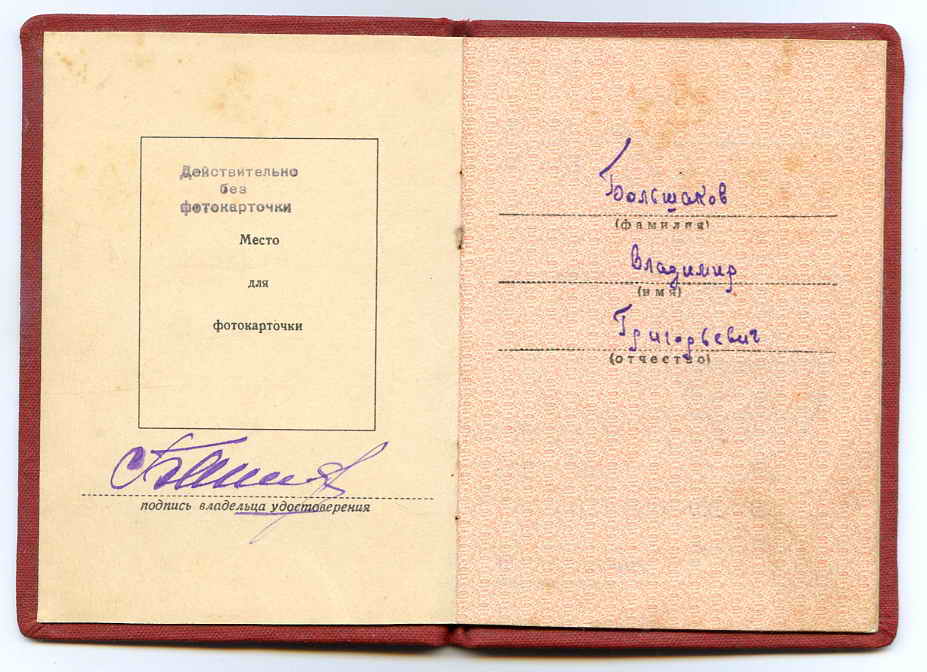 Действительно
без
фотокарточки
Место
для
фотокарточки
подпись владельца удостоверения
Большаков
(фамилия)
Владимир
(имя)
Григорьевич
(отчество)